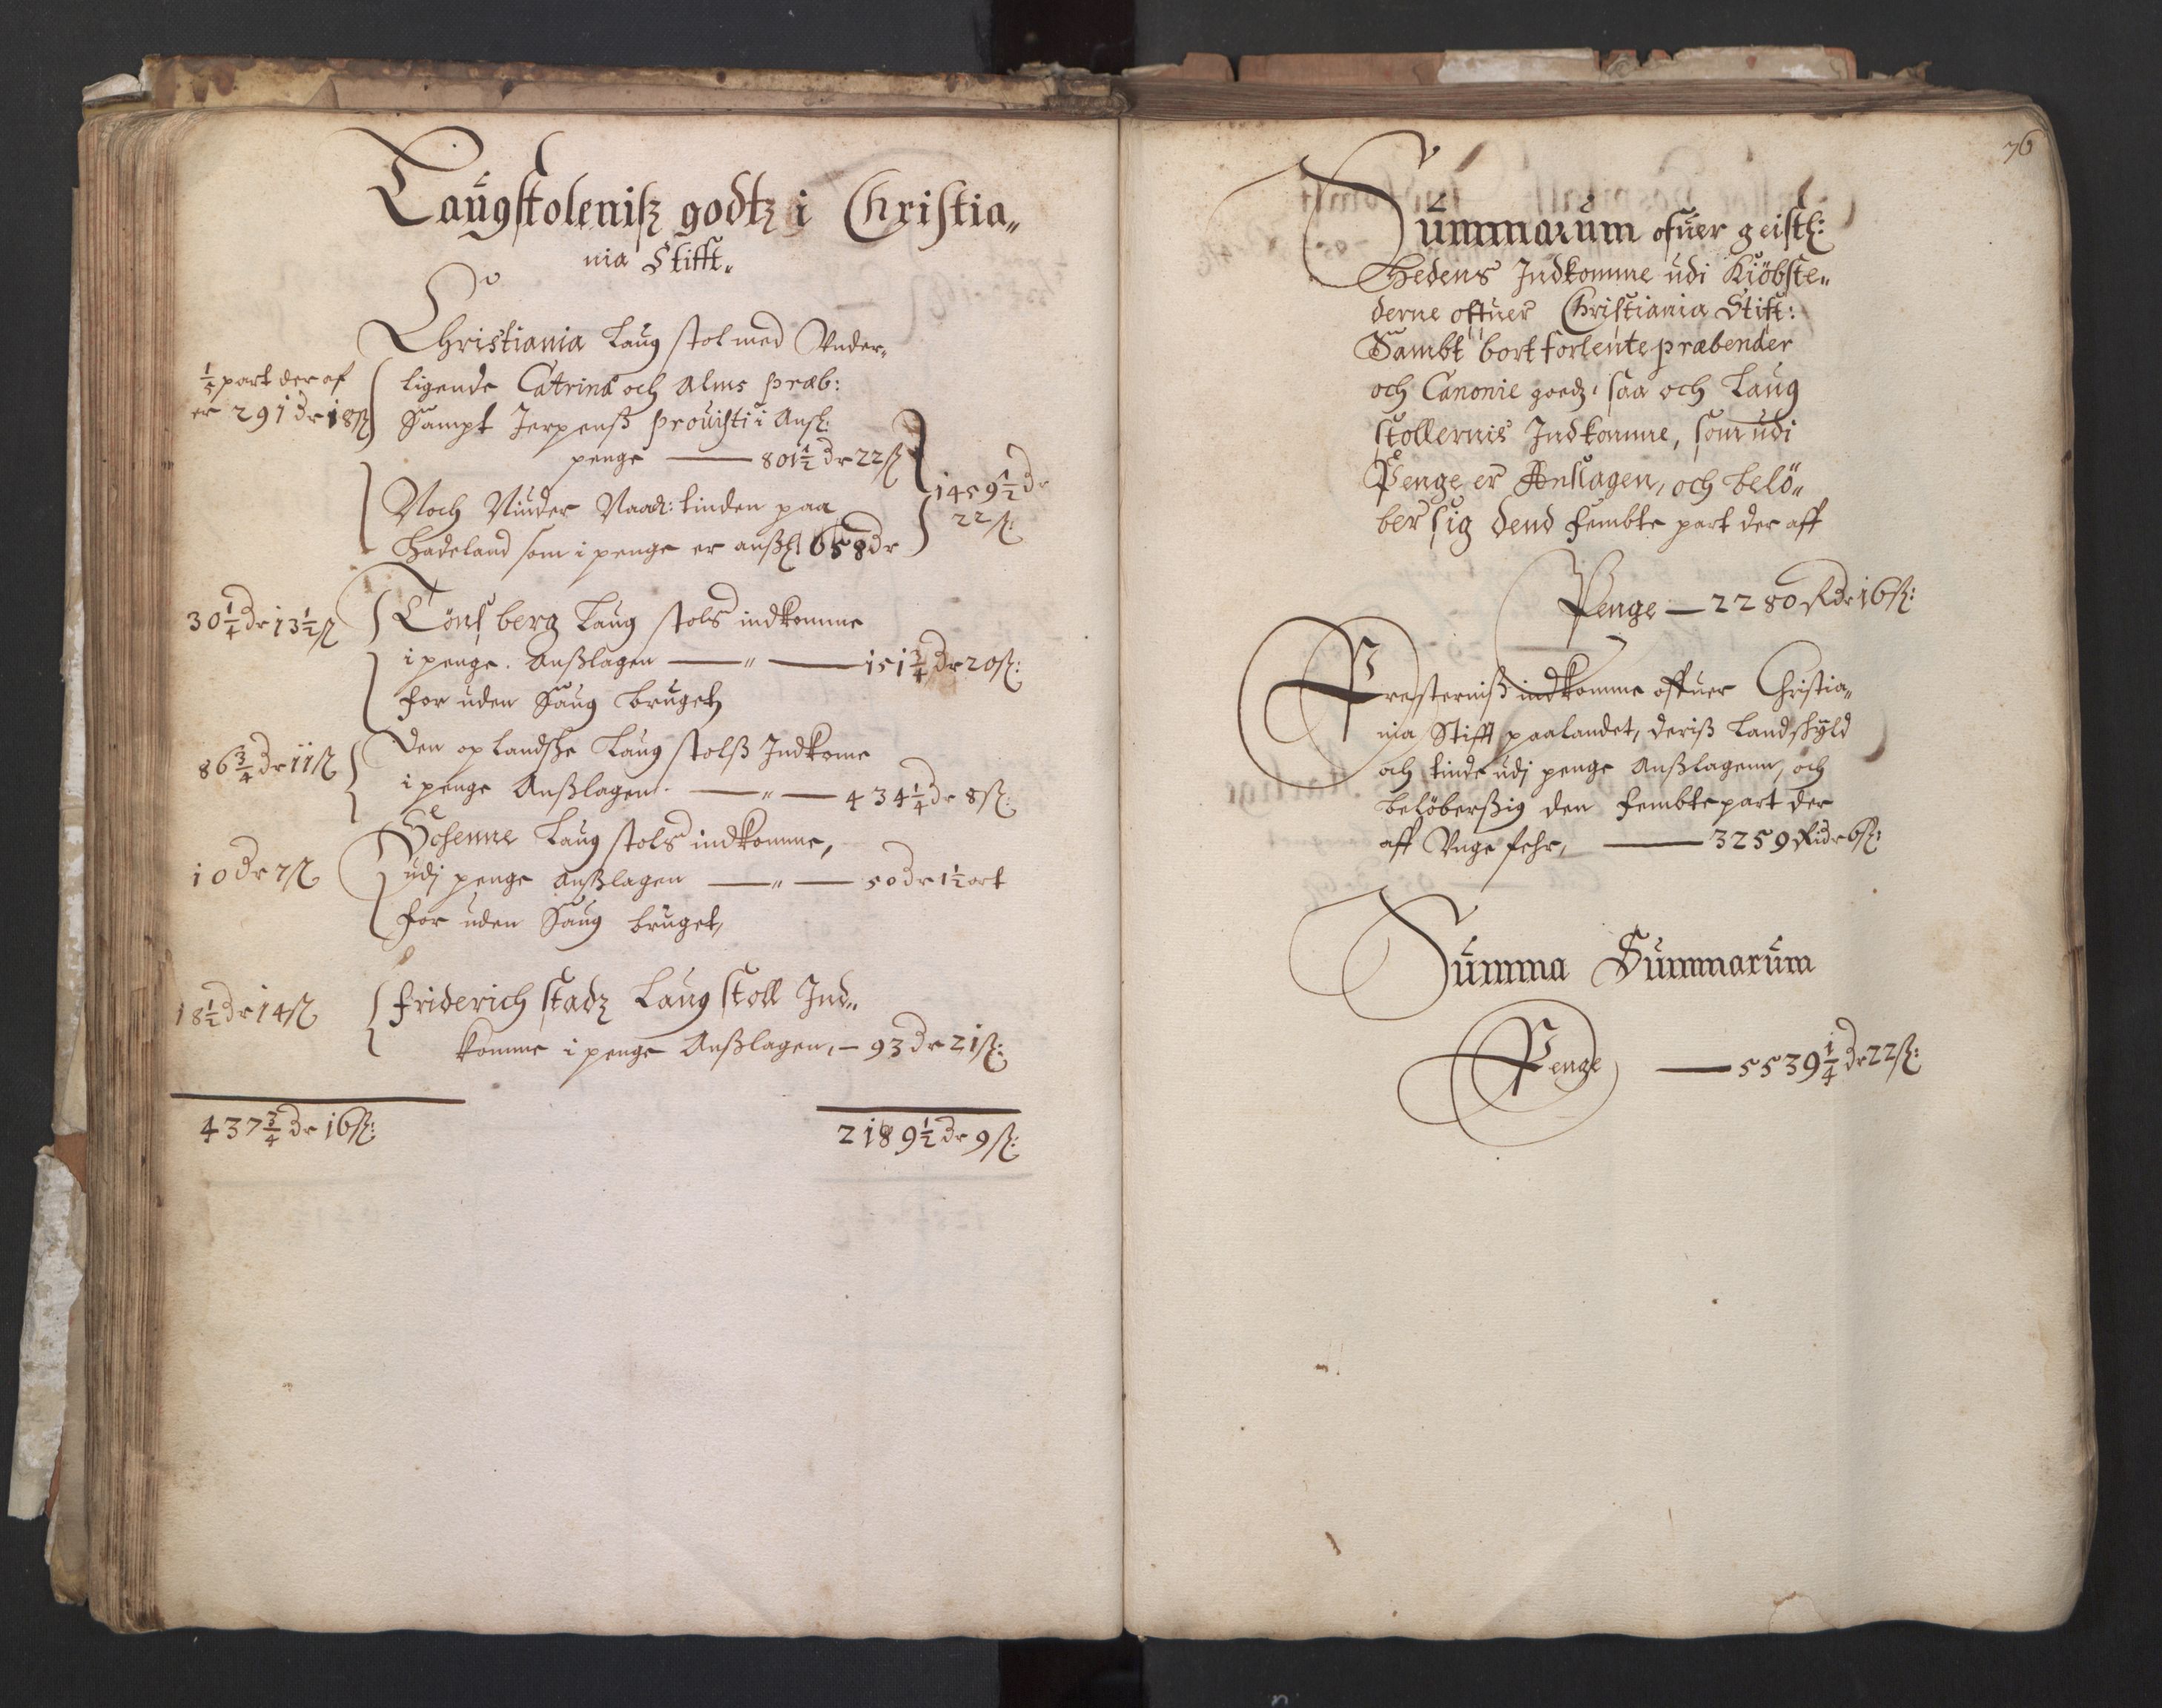 Laugstolenisz godtz i Christia„
nia Stifft„
Christiania Laug stol med Vnder„
ligende Catrinæ och Alms præb:
Sampt Jerpenß prouisti i Ansl:
penge — 801½ dr 22 ß
⅕ part der af
er 291 dr 18 ß
Noch Niuder Naad: tinden paa
Hadeland som i penge er anßl 658 dr
1459½ dr
22 ß:
30¼ dr 13½ ß
Tönsberg Laug stols indkomme
i penge. Anßlagen — „ — 151¾ dr 20 ß:
for uden Saug bruget
86¾ dr 11 ß
Den oplandske Laug stolß Indkome
i penge Anßlagen. — „ — 434¼ dr 8 ß:
10 dr 7 ß
Schenne Laug stols indkomme,
udj penge Anßlagen — „ — 50 dr 1½ ort
for uden Saug bruget,
18½ dr 14 ß
Friderich stadz Laug stoll Ind„
komme i penge Anßlagen, — 93 dr 21 ß:
437¾ dr 16 ß:
2189½ dr 9 ß:
76
Summarum ofuer geistl:
Hedens Indkomme udi Kiöbste„
derne offuer Christiania Stift:
Sambt bort forlente præbender
och Canonie goedz, saa och Laug
stollernis Indkomme, som udi
Penge er Anslagen, och belö„
ber sig dend fembte part der aff
Penge — 2280 Rdr 16 ß:
Presterniß indkomme offuer Christia„
nia Stifft paalandet, deriß Landskyld
och tinde udj penge Anßlagenn, och
belöberßig den fembte part der
aff Vnge fehr, — 3259 Ridr 6 ß:
Summa Summarum
Penge — 5539¼ dr 22 ß: